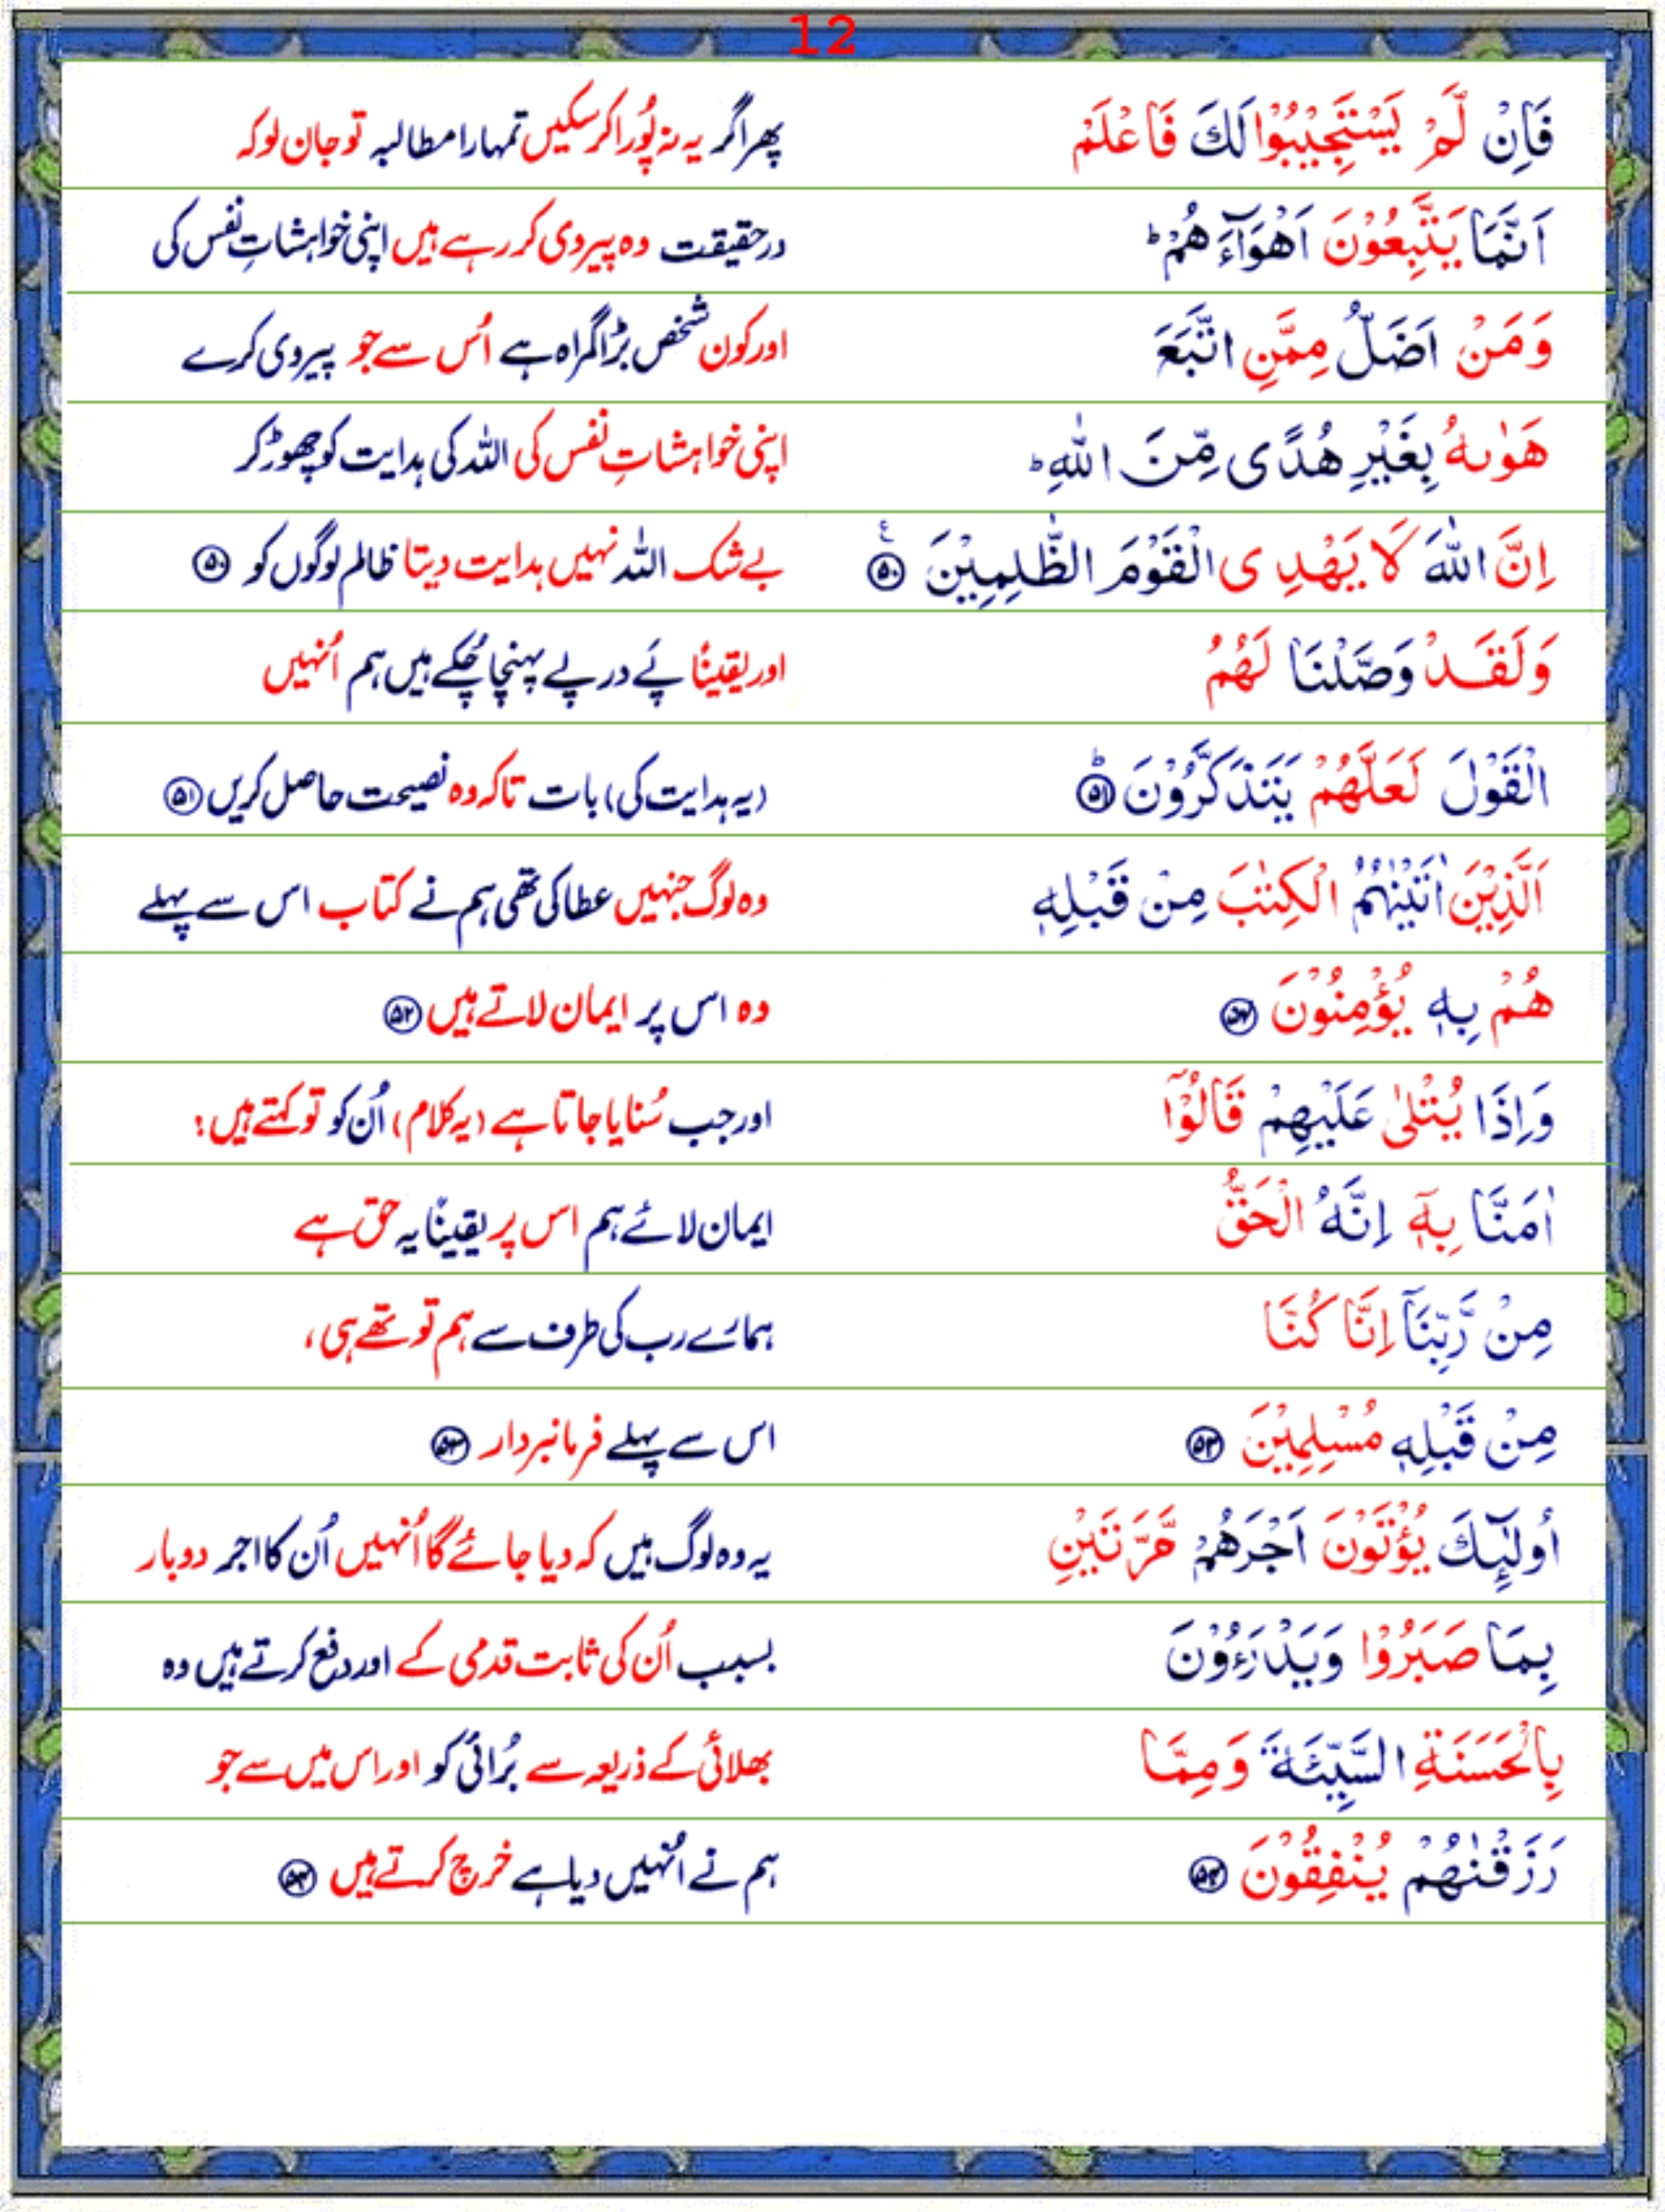 12
فَاِنْ لَّمْ يَسْتَجِيْبُوْا لَكَ فَاعْلَمْ پھر اگر یہ نہ پُورا کر سکیں تمہارا مطالبہ تو جان لو کہ
اَنَّمَا يَتَّبِعُوْنَ اَهْوَآءَهُمْ ؕ درحقیقت وہ پیروی کر رہے ہیں اپنی خواہشاتِ نفس کی
وَمَنْ اَضَلُّ مِمَّنِ اتَّبَعَ اور کون شخص بڑا گمراہ ہے اُس سے جو پیروی کرے
هَوٰىهُ بِغَيْرِ هُدًى مِّنَ اللّٰهِ ؕ اپنی خواہشاتِ نفس کی اللہ کی ہدایت کو چھوڑ کر
اِنَّ اللّٰهَ لَا يَهْدِى الْقَوْمَ الظّٰلِمِيْنَ ۵۰ ع بے شک اللہ نہیں ہدایت دیتا ظالم لوگوں کو ۵۰
وَلَقَدْ وَصَّلْنَا لَهُمُ اور یقیناً پَے در پے پہنچا چُکے ہیں ہم اُنہیں
الْقَوْلَ لَعَلَّهُمْ يَتَذَكَّرُوْنَ ؕ ۵۱ (یہ ہدایت کی) بات تاکہ وہ نصیحت حاصل کریں ۵۱
اَلَّذِيْنَ اٰتَيْنٰهُمُ الْكِتٰبَ مِنْ قَبْلِهٖ وہ لوگ جنہیں عطا کی تھی ہم نے کتاب اس سے پہلے
هُمْ بِهٖ يُؤْمِنُوْنَ ۵۲ وہ اس پر ایمان لاتے ہیں ۵۲
وَاِذَا يُتْلٰى عَلَيْهِمْ قَالُوْٓا اور جب سُنایا جاتا ہے (یہ کلام) اُن کو تو کہتے ہیں:
اٰمَنَّا بِهٖۤ اِنَّهُ الْحَقُّ ایمان لائے ہم اس پر یقیناً یہ حق ہے
مِنْ رَّبِّنَآ اِنَّا كُنَّا ہمارے رب کی طرف سے ہم تو تھے ہی،
مِنْ قَبْلِهٖ مُسْلِمِيْنَ ۵۳ اس سے پہلے فرمانبردار ۵۳
اُولٰٓئِكَ يُؤْتَوْنَ اَجْرَهُمْ مَّرَّتَيْنِ یہ وہ لوگ ہیں کہ دیا جائے گا اُنہیں اُن کا اجر دوبار
بِمَا صَبَرُوْا وَيَدْرَءُوْنَ بسبب اُن کی ثابت قدمی کے اور دفع کرتے ہیں وہ
بِالْحَسَنَةِ السَّيِّئَةَ وَمِمَّا بھلائی کے ذریعہ سے بُرائی کو اور اس میں سے جو
رَزَقْنٰهُمْ يُنْفِقُوْنَ ۵۴ ہم نے اُنہیں دیا ہے خرچ کرتے ہیں ۵۴